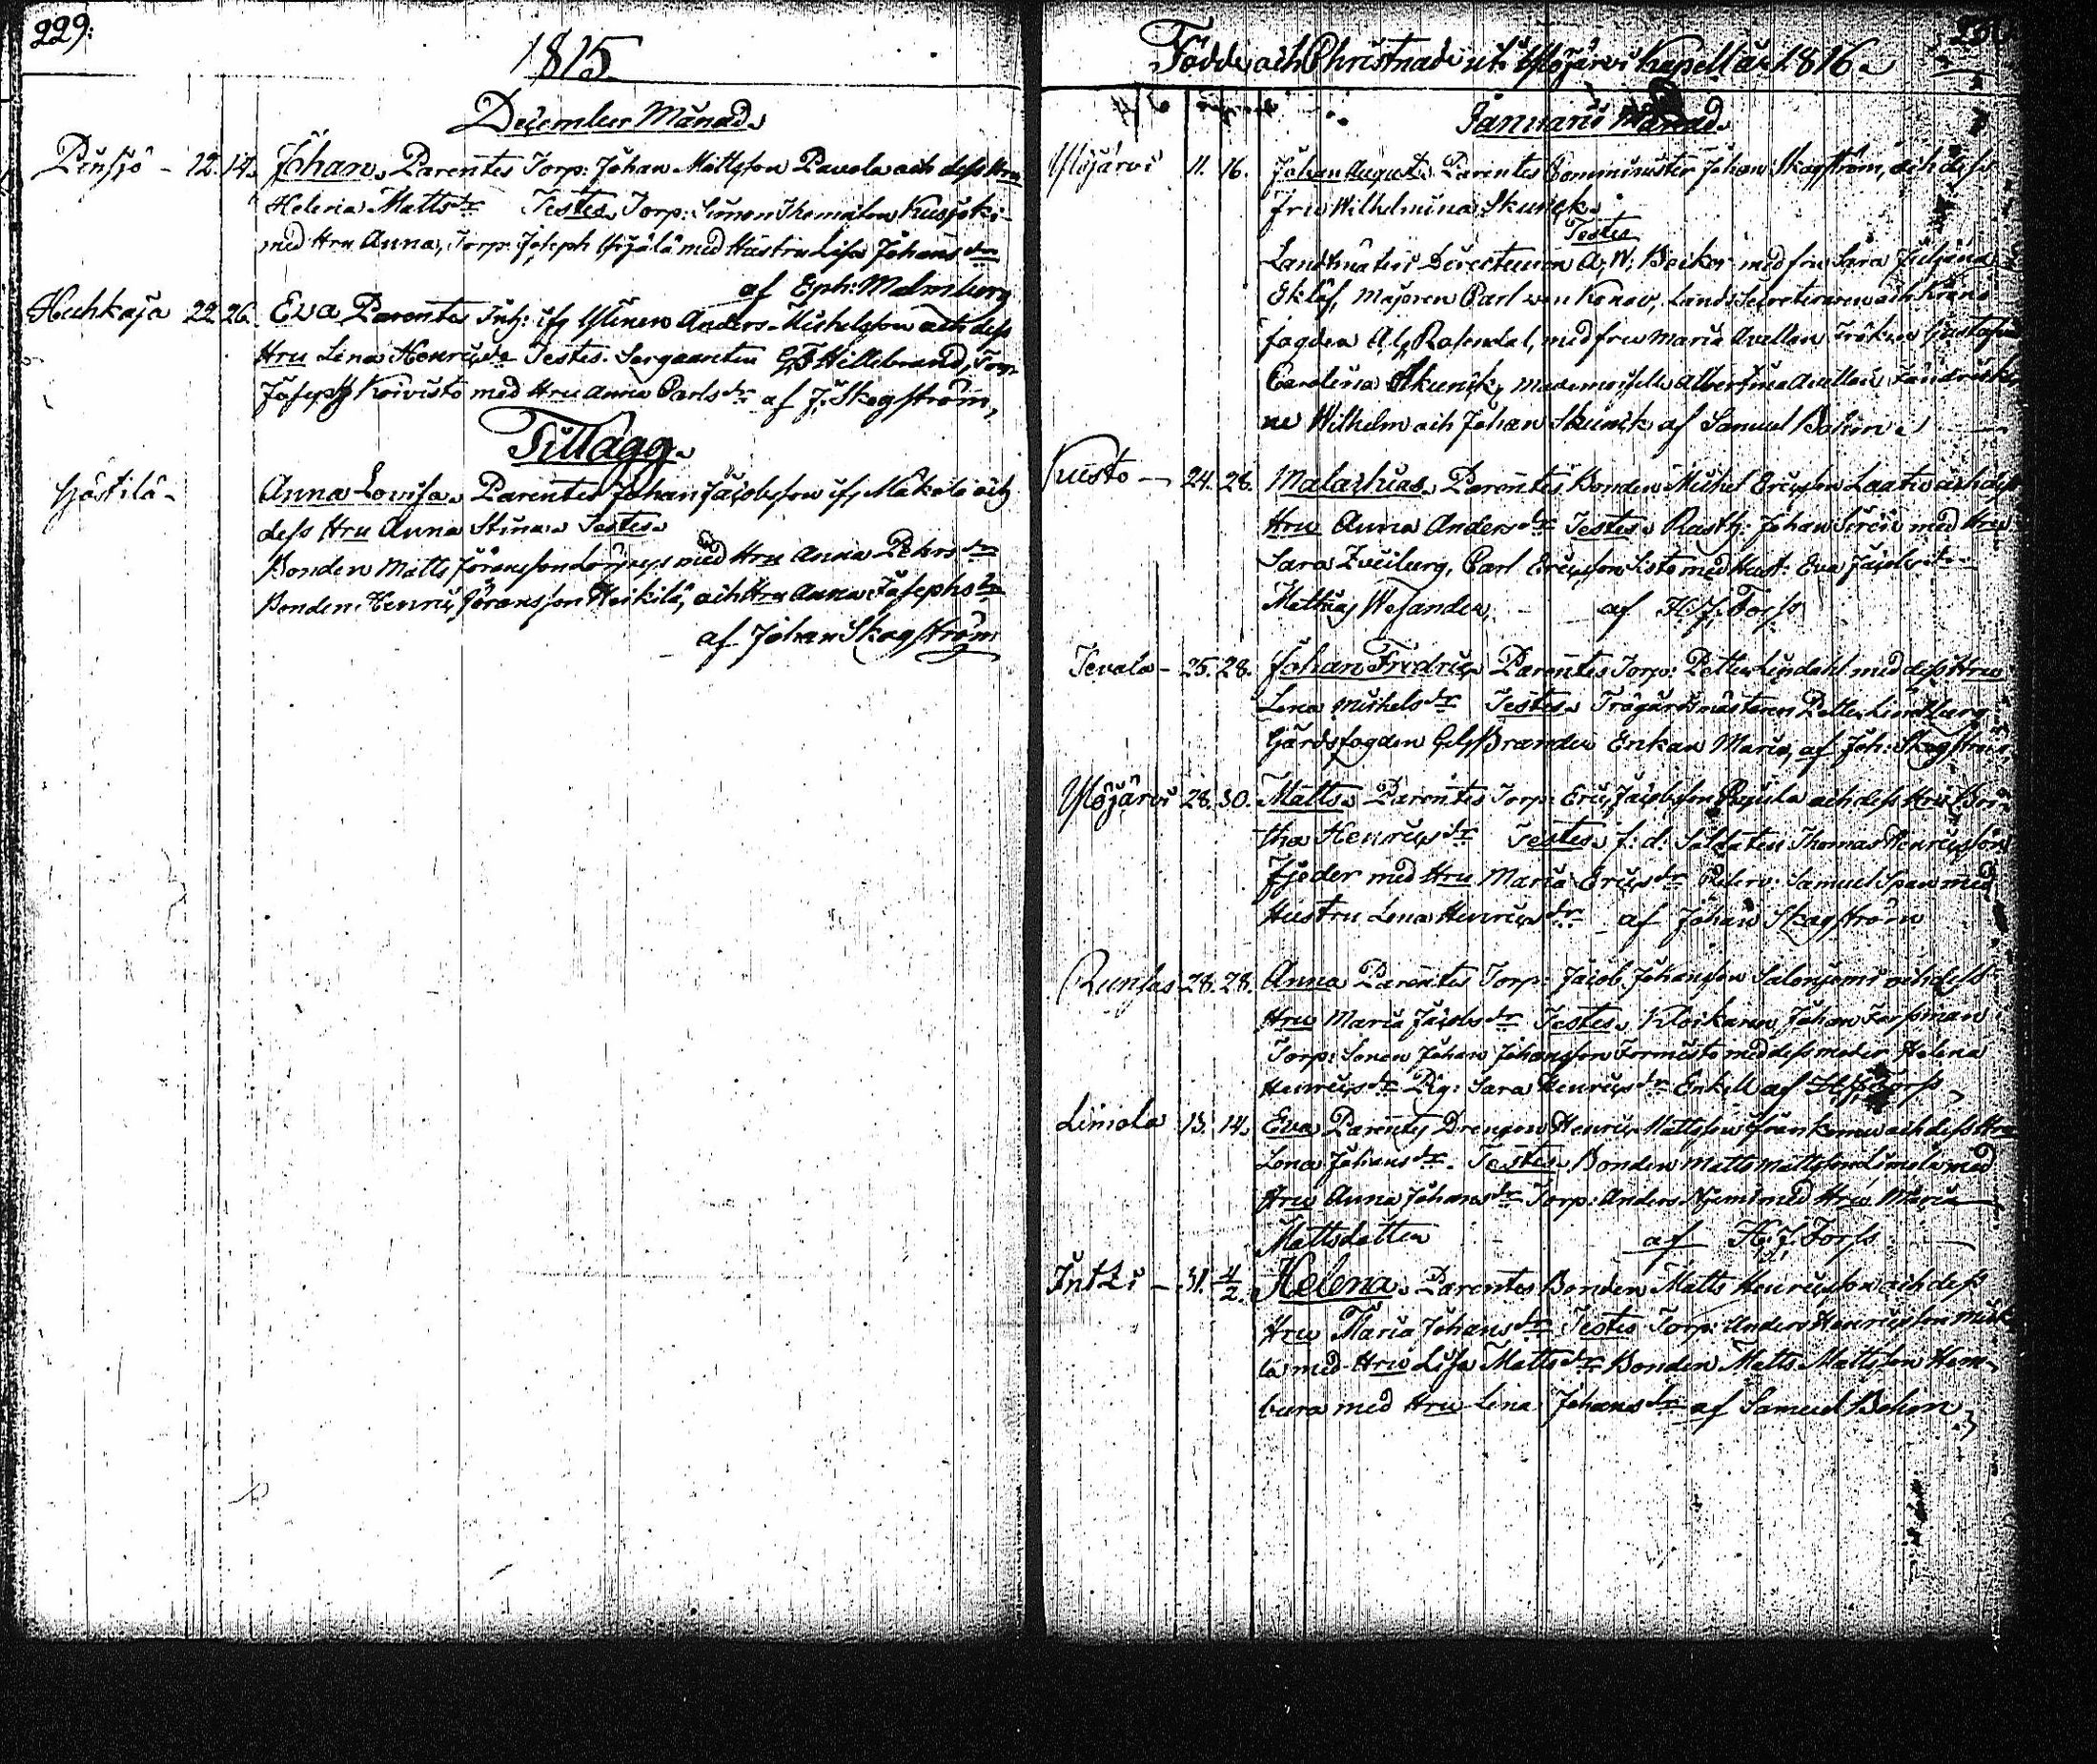 229.
1815
December Månad.
Pensjö - 12. 14. Johan. Parentes Torp: Johan Mattsson Pavola och dess Hru
Helena Matts dr Testes. Torp: Simon Thomasson Kusjoki
med Hru Anna, Torp: Joseph Yijälä med Hustru Lisa Johans dr
af Eph: Malmberg
Huhkaja 22. 26. Eva Parentes Inh: ifr Ylinen Anders Michelsson och dess
Hru Lena Henrics dr Testes. Sergeanten G. F. Hillebrand, Torp:
Joseph Koivisto med Hru Anna Carls dr af J. Skogström,
Tillägg.
Anna Lovisa. Parentes Johan Jacobsson ifr Mäkelä och
dess Hru Anna Stina. Testes.
Bonden Matts Göransson med Hru Anna Pehrs dr
Bonden Henric Göransson Heikilä, och Hru Anna Josephs dr
af Johan Skogström
Födde och Christnade uti Ylöjärvi Kapell år 1816.
Januarii Månad.
Ylöjärvi 11. 16. Johan August. Parentes Comminister Johan Skogström, och dess
fru Wilhelmina Skunck.
Testes
Landtmäteri Directeuren A. W. Becker med fru Sara Juliana
Eklöf, Majoren Carl von Konow, Lands Secreteraren och Krono
fogden A. G. Rosendal, med fru Maria Avellan Fröken Gustafva
Carolina Skunck, Mademoiselle Albertina Avellan
ne Wilhelm och Johan Skunck af Samuel Bohm.
Kuusto - 24. 28. Malachias. Parentes Bonden Michel Ericsson Laatio och dess
Hru Anna Anders dr Testes. Rusth: Johan Sirén med Hru
Sara Zveiburg, Carl Ericsson Sisto med Hust: Eva Jacobs dr
Mathias Welander, - af H. J. Forss
Tevala - 25. 28. Johan Fredric. Parentes Torp: Petter Lindahl med dess Hru
Lena Michels dr Testes. Trägårdsmästaren Petter Lindberg
Gårdsfogden Brander Enkan Maria, af Joh: Skogström,
Ylöjärvi 28. 30. Matts. Parentes Torp: Eric Jacobsson och dess Hru Bri-
tha Henrics dr Testes. f: d: Soldaten Thomas Henricsson
Fjeder med Hru Maria Erics dr Reserv: Samuel Span med
Hustru Lena Henrics dr af Johan Skogström
Runsas 28. 28. Anna Parentes Torp: Jacob Johansson Salonjemi och dess
Hru Maria Jacobs dr Testes. Klockaren Johan Forssman
Torp: Sonen Johan Johansson Tormisto med dess moder Helena
Henrics dr Pig: Sara Henrics dr Enkell af H. J. Forss,
Limola 13. 14. Eva Parentes Drengen Henric Mattsson och dess Hru
Lena Johans dr. Testes. Bonden Matts Mattsson Limola med
Hru Anna Johans dr Torp: Anders Njemi med Hru Maria
Mattsdotter af H. J. Forss
Intti - 31. 4/2. Helena. Parentes Bonden Matts Henricsson och dess
Hru Maria Johans dr Testes Torp: Anders Henricsson
la med Hru Lisa Matts dr Bonden Matts Mattsson Hem-
bura med Hru Lena Johans dr af Samuel Bohm.